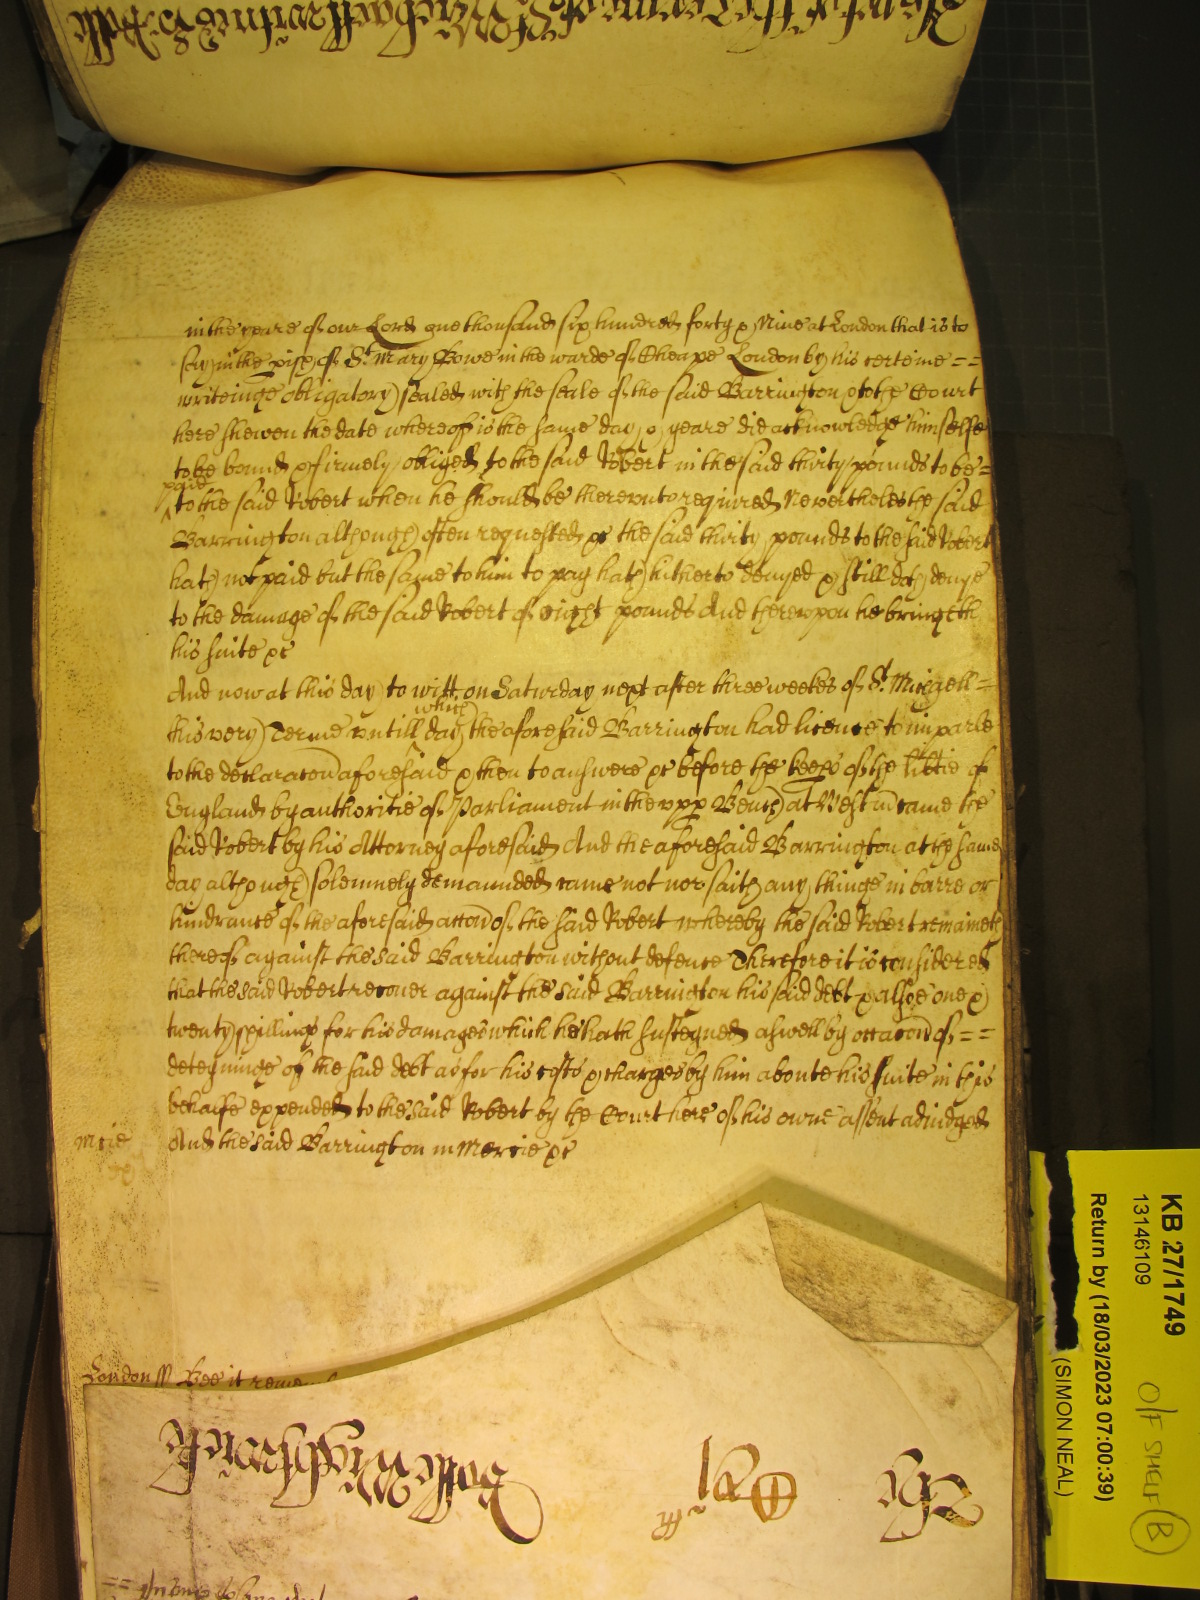 in the yeare of our Lord one thousand six hundred forty & Nine at London that is to
say in the pish of St. Mary Bowe in the warde of Cheape London by his certeine = =
writeinge obligatory sealed with the seale of the said Barrington & to the Court
here shewen the date whereof is the same day & yeare did acknowledge himselfe
to be bound & firmely obliged to the said Robert in the said thirty pounds to be =
paid
to the said Robert when he should be thereunto required Neverthelesse the said
Barrington although often requested &c the said thirty pounds to the said Robert
hath not paid but the same to him to pay hath hitherto denyed & still doth denye
to the damage of the said Robert of eight pounds And thereupon he bringeth
his suite &c
And now at this day to witt on Saturday next after three weekes of St. Michaell =
which
this very Terme untill day the aforesaid Barrington had licence to imparle
to the declaracon aforesaid & then to answere &c before the keeps of the libtie of
England by authoritie of Parliament in the upp Bench at Westm came the
said Robert by his Attorney aforesaid And the aforesaid Barrington at the same
day although solemnely demaunded came not nor saith any thinge in barre or
hindrance of the aforesaid accon of the said Robert whereby the said Robert remaineth
thereof against the said Barrington without defence Therefore it is considered
that the said Robert recover against the said Barrington his said debt & alsoe one &
twenty shillings for his damages which he hath susteyned aswell by occacon of = =
deteyninge of the said debt as for his costs & charges by him aboute his suite in this
behalfe expended to the said Robert by the Court here of his owne assent adiudged
mcie
And the said Barrington in Mercie &c
London ss Bee it reme
KB 27/1749
13146109
Return by (18/03/2023 07:00:39)
(SIMON NEAL)
O/F SHELF B